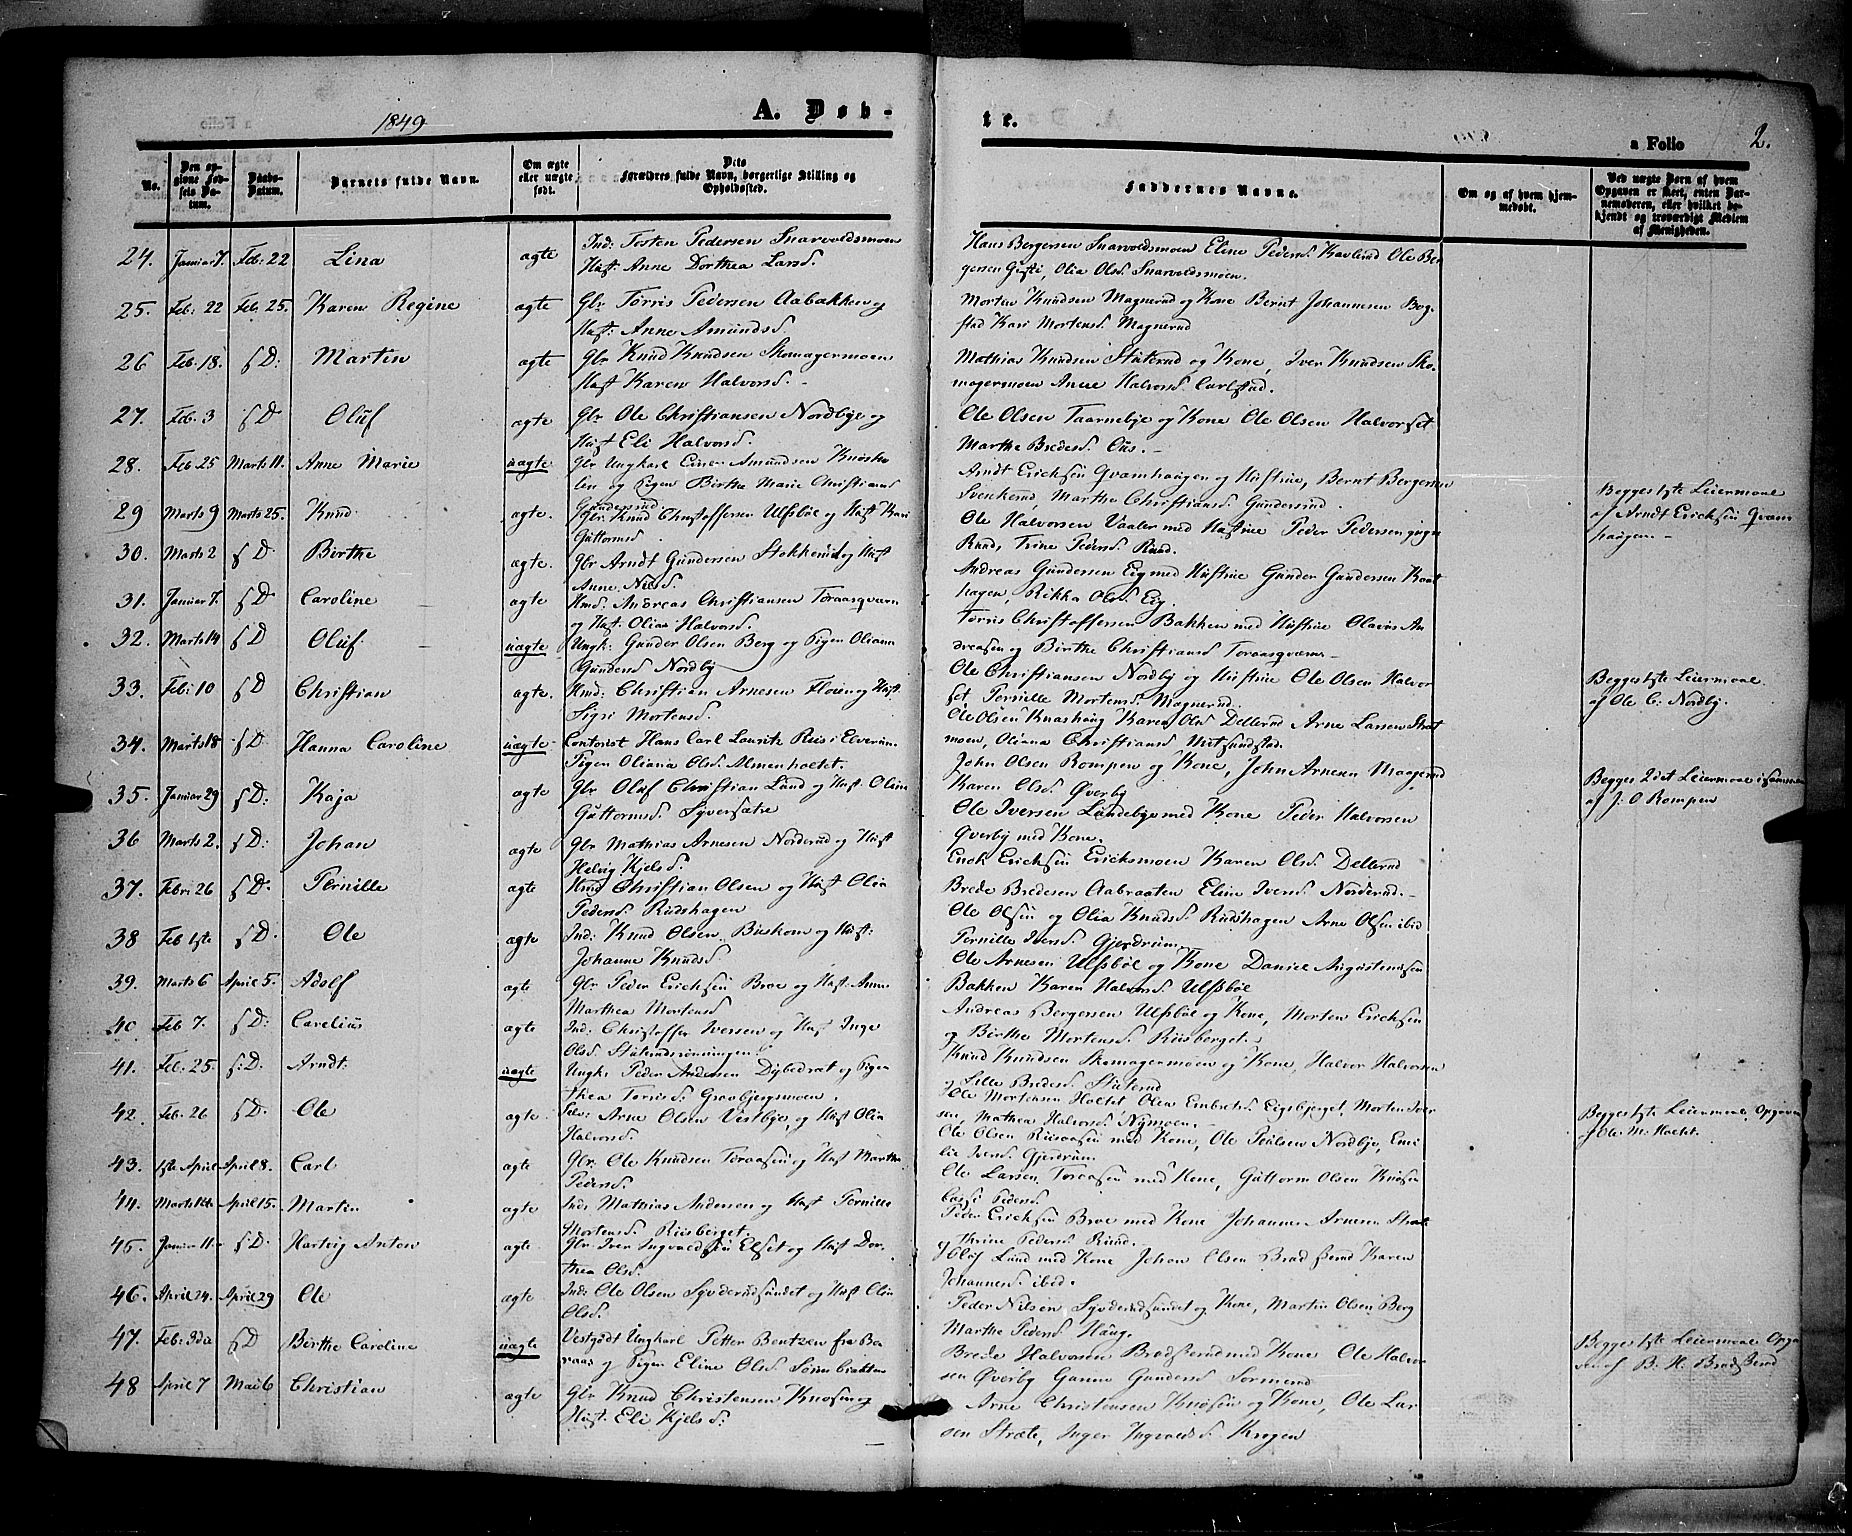 1849
A. Døb-
No.
Den op-
givne Fød-
sels Da-
tum.
Daabs-
Datum.
Barnets fulde Navn.
Om ægte
eller uægte
født.
Dito
Forældres fulde Navn, borgerlige Stilling og
Opholdssted.
24. Januar 7. Feb: 22 Lina ægte Ind: Tosten Pedersen Snarvoldsmoen
Hust. Anne Dorthea Larsd.
25. Feb: 22 Feb. 25. Karen Regine ægte Gbr Torris Pedersen Aabakken og
Hust: Anne Amundsd.
26 Feb. 18. S D: Martin ægte Gbr Knud Knudsen Skomagermoen
Hust Karen Halvorsd. -
27. Feb. 3 S D Oluf ægte Gbr Ole Christiansen Nordbye og
Hust Eli Halvorsd.
28. Feb 25 Marts 11. Anne Marie uægte Gbr Ungkarl Einer Amundsen Knashu
len og Pigen Birthe Marie Christiansd
Gundersrud
29 Marts 9 Marts 25. Knud ægte. Gbr: Knud Christoffersen Ulfsbøl og Hust Kari
Guttormsd.
30. Marts 2 S D. Birthe ægte. Gbr Arndt Gundersen Stokkerud og Hust
Anne Nilsd.
31. Januar 7. S D. Caroline ægte Hmd: Andreas Christiansen Toraasqværn
og Hust. Olia Halvorsd.
32. Marts 14 S D Oluf uægte Ungk: Gunder Olsen Berg og Pigen Oliana
Gundersd Nordby
33. Feb: 10 S D Christian ægte. Hmd: Christian Arnesen Floien og Hust.
Sigri Mortensd.
34. Marts 18 S D. Hanna Caroline uægte Contorist Hans Carl Lauritz Riis i Elverum
Pigen Oliana Olsd. Almenholtet.
35. Januar 29 S D: Kaja ægte Gbr Oluf Christian Lund og Hust. Olina
Guttormsd. Syversætre
36 Marts 2. S D: Johan ægte Gbr Mathias Arnesen Norderud og Hust
Helvig Kjelsd.
37. Febr: 26 S D. Pernille ægte Hmd Christian Olsen og Hust Olia
Pedersd. Rudshagen
38 Feb 1ste S D. Ole ægte Ind: Knud Olsen Buskom og Hust:
Johanne Knudsd
39. Marts 6 April 5. Adolf ægte Gbr Peder Erichsen Broe og Hust. Anne
Marthea Mortensd
40 Feb 7. S D: Carelius ægte Ind: Christoffer Iversen og Hust Inge
Olsd.
41. Feb. 25. S:D. Arndt uægte Ungk: Peder Andersen og Pigen
Thea Torrisd. Graabjergsmoen.
42. Feb. 26 S D: Ole ægte Arne Olsen Vestbye, og Hust Olia
Halvorsd.
43. 1ste April April 8. Carl ægte Gbr. Ole Knudsen Toraasen og Hust Marthe
Pedersd.
44. Marts 14de April 15. Martin ægte Ind: Mathias Andersen og Hust Pernille
Mortensd. Riisberget.
45. Januar 11. S D: Hartvig Anton ægte Gbr. Iver Ingvaldsen Elset og Hust Dor-
thea Olsd.
46. April 24. April 29 Ole ægte Ind: Ole Olsen Syverudsundet og Hust Olia
Olsd.
47. Feb: 3die S D Birthe Caroline uægte Vestgodt Ungkarl Petter Bentzen fra Bo
raas og Pigen Eline Olsd.
48 April 7 Mai 6 Christian ægte Gbr Knud Christensen Knosen og
Hust: Eli Kjelsd.
te.
a Folio 2.
Faddernes Navne.
Om og af hvem hjem-
medøbt.
Ved uægte Børn af hvem
Opgaven er skeet, enten Bar-
nemoderen, eller hvilket be-
kjendt og troværdigt Medlem
af Menigheden.
Hans Bergersen Snarvoldsmoen Eline Pedersd Kavlerud Ole Ber
gersen Olia Olsd. Snarvoldsmoen.
Morten Knudsen Magnerud og Kone Bernt Johannesen Bog-
stad Kari Mortensd. Magnerud
Mathias Knudsen Stuterud og Kone, Iver Knudsen Sko-
magermoen Anne Halvorsd. Carlstad.
Ole Olsen Taarnebye og Kone Ole Olsen Halvorset
Marthe Bredesd. Ous. -
Arndt Erichsen Qvamhaugen og Hustrue, Bernt Bergersen
Svenkerud Marthe Christiansd. Gundersrud.
Begges 1ste Leiermaal
af Arndt Erichsen Qvam
haugen. -
Ole Halvorsen Vaaler med Hustrue Peder Pedersen
Ruud, Trine Pedersd. Ruud.
Andreas Gundersen Eig med Hustrue Gunder Gundersen
hagen, Rikka Olsd. Eig.
Torris Christoffersen Bakken med Hustrue Olavus An
dreasen og Birthe Christiansd Toraasqværn -
Ole Christiansen Nordby og Hustrue Ole Olsen Halvor
set Pernille Mortensd. Magnerud.
Begges 1ste Leiermaal
af Ole C. Nordby.
Ole Olsen Knashaug Karen Olsd Dellerud Arne Larsen
moen, Oliana Christiansd.
John Olsen Rompen og Kone, John Arnesen Maagerud
Karen Olsd Øverby
Begges 2det Leiermaal
af J. O Rompen
Ole Iversen Lundebye med Kone Peder Halvorsen
Øverby med Kone.
Erik Erichsen Eriksmoen Karen Olsd. Dellerud
Brede Bredesen Aabraaten Eline Iversd. Norderud. -
Ole Olsen og Olia Knudsd. Rudshagen Arne Olsen ibid
Pernille Iversd. Gjerdrum.
Ole Arnesen Ulfsbøl og Kone Daniel Augustenusen
Bakken Karen Halvorsd. Ulfsbøl
Andreas Bergersen Ulfsbøl og Kone, Morten Erichsen
og Birthe Mortensd. Riisberget.
Knud Knudsen Skomagermoen og Kone, Halvor Halvorsen
og Sille Bredesd. Stuterud
Ole Mortensen Holtet Olea Embretsd. Eigsbjerget, Morten Iver
sen, Mathea Halvorsd. Nymoen. -
Begges 1ste Leiermaal, Opgaven
af Ole M. Holtet.
Ole Olsen Riisaasen med Kone, Ole Nordbye, Emi
lie Iversd. Gjerdrum.
Ole Larsen Toraasen med Kone, Guttorm Olsen Knosen
Pedersd.
Peder Erichsen Broe med Kone Johannes Arnesen
og Thrine Pedersd. Ruud.
Oluf Lund med Kone Johan Olsen Brodserud Karen
Johannesd. ibid.
Peder Nilsen Syverudsundet og Kone, Martin Olsen Berg
Marthe Pedersd Haug.
Brede Halvorsen Brodserud med Kone Ole Halvor
sen Øverby Gundersd Sormerud
Begges 1ste Leiermaal Opga
ven af B. H. Brodserud
Arne Christensen Knosen og Kone, Ole Lar
sen Stræte, Inger Ingvaldsd. Krogen